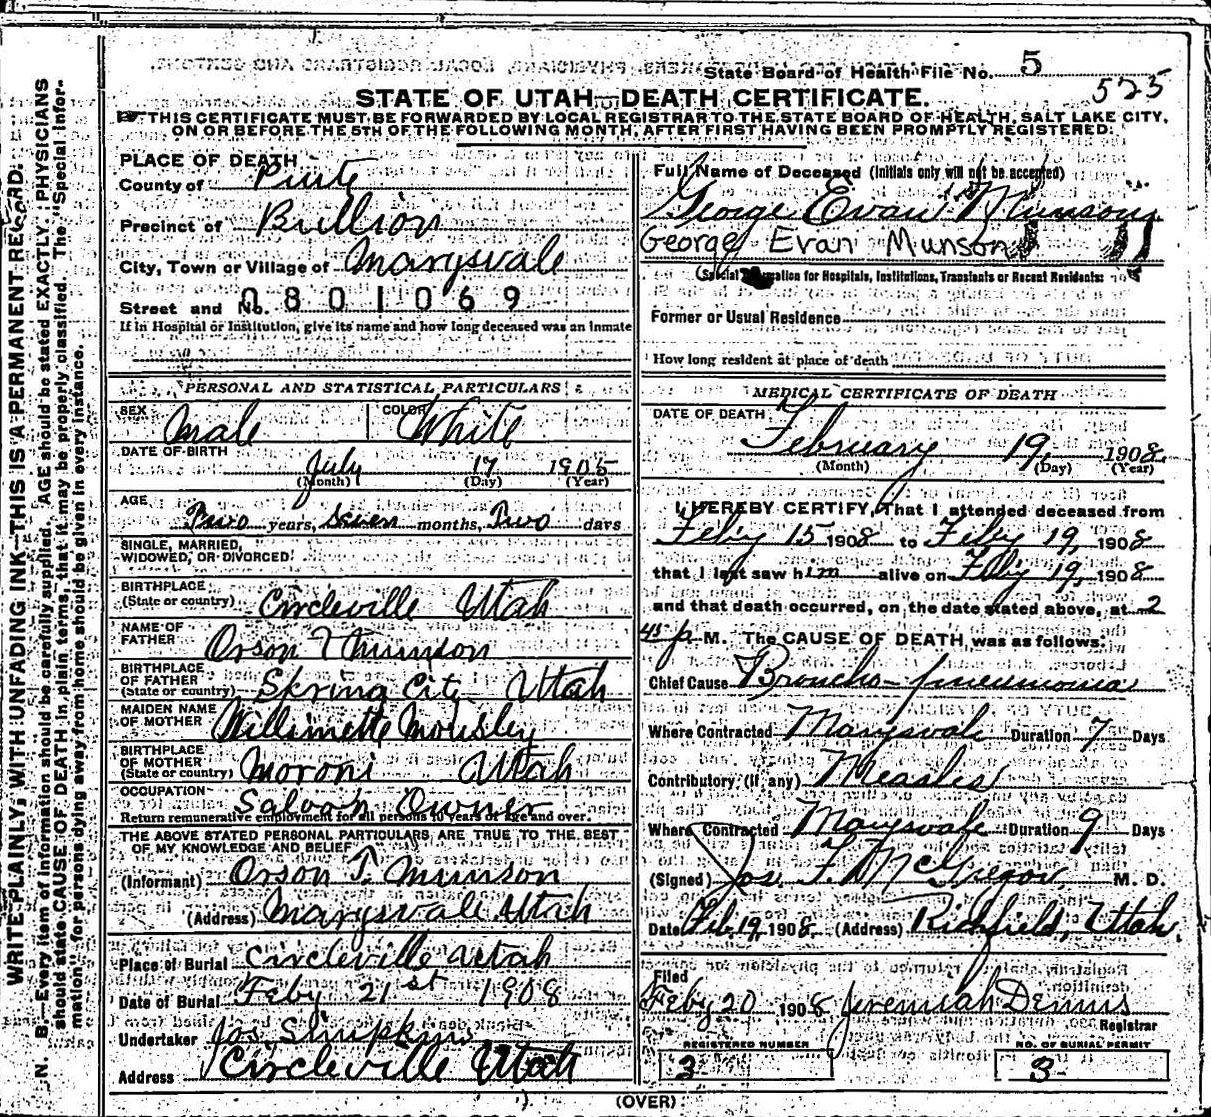 State Board of Health File No. 5
525
STATE OF UTAH—DEATH CERTIFICATE.
THIS CERTIFICATE MUST BE FORWARDED BY LOCAL REGISTRAR TO THE STATE BOARD OF HEALTH, SALT LAKE CITY,
ON OR BEFORE THE 5TH OF THE FOLLOWING MONTH, AFTER FIRST HAVING BEEN PROMPTLY REGISTERED:
WRITE PLAINLY, WITH UNFADING INK—THIS IS A PERMANENT RECORD.
N. B.—Every item of information should be carefully supplied. AGE should be stated EXACTLY. PHYSICIANS
should state CAUSE OF DEATH in plain terms, that it may be properly classified. The "Special Infor-
mation" for persons dying away from home should be given in every instance.
PLACE OF DEATH
County of Piute
Precinct of Bullion
City, Town or Village of Marysvale
Street and No. 0801069
If in Hospital or Institution, give its name and how long deceased was an inmate
PERSONAL AND STATISTICAL PARTICULARS
SEX Male COLOR White
DATE OF BIRTH
July 17 1905
(Month) (Day) (Year)
AGE
Two years, Seven months, Two days
SINGLE, MARRIED,
WIDOWED, OR DIVORCED
BIRTHPLACE
(State or country) Circleville Utah
NAME OF
FATHER Orson T Munson
BIRTHPLACE
OF FATHER
(State or country) Skring City Utah
MAIDEN NAME
OF MOTHER Willimette Mousley
BIRTHPLACE
OF MOTHER
(State or country) Moroni Utah
OCCUPATION Saloon Owner
Return remunerative employment for all persons 10 years of age and over.
THE ABOVE STATED PERSONAL PARTICULARS ARE TRUE TO THE BEST
OF MY KNOWLEDGE AND BELIEF
(Informant) Orson T. Munson
(Address) Marysvale Utah
Place of Burial Circleville Utah
Date of Burial Feby 21st 1908
Undertaker Jos. Simpkins
Address Circleville Utah
Full Name of Deceased (Initials only will not be accepted)
George Evan Munson
George Evan Munson
(Special Information for Hospitals, Institutions, Transients or Recent Residents:
Former or Usual Residence
How long resident at place of death
MEDICAL CERTIFICATE OF DEATH
DATE OF DEATH
February 19, 1908
(Month) (Day) (Year)
I HEREBY CERTIFY, That I attended deceased from
Feby 15 1908 to Feby 19, 1908
that I last saw him alive on Feby 19, 1908
and that death occurred, on the date stated above, at 2
45 p M. The CAUSE OF DEATH was as follows:
Chief Cause Broncho-pneumonia
Where Contracted Marysvale Duration 7 Days
Contributory (if any) Measles
Where Contracted Marysvale Duration 9 Days
(Signed) Jos. F. McGregor, M. D.
Date Feb 19, 1908 (Address) Richfield, Utah.
Filed
Feby 20 1908 Jeremiah Dennis
Registrar
REGISTERED NUMBER
3
NO. OF BURIAL PERMIT
3
(OVER)